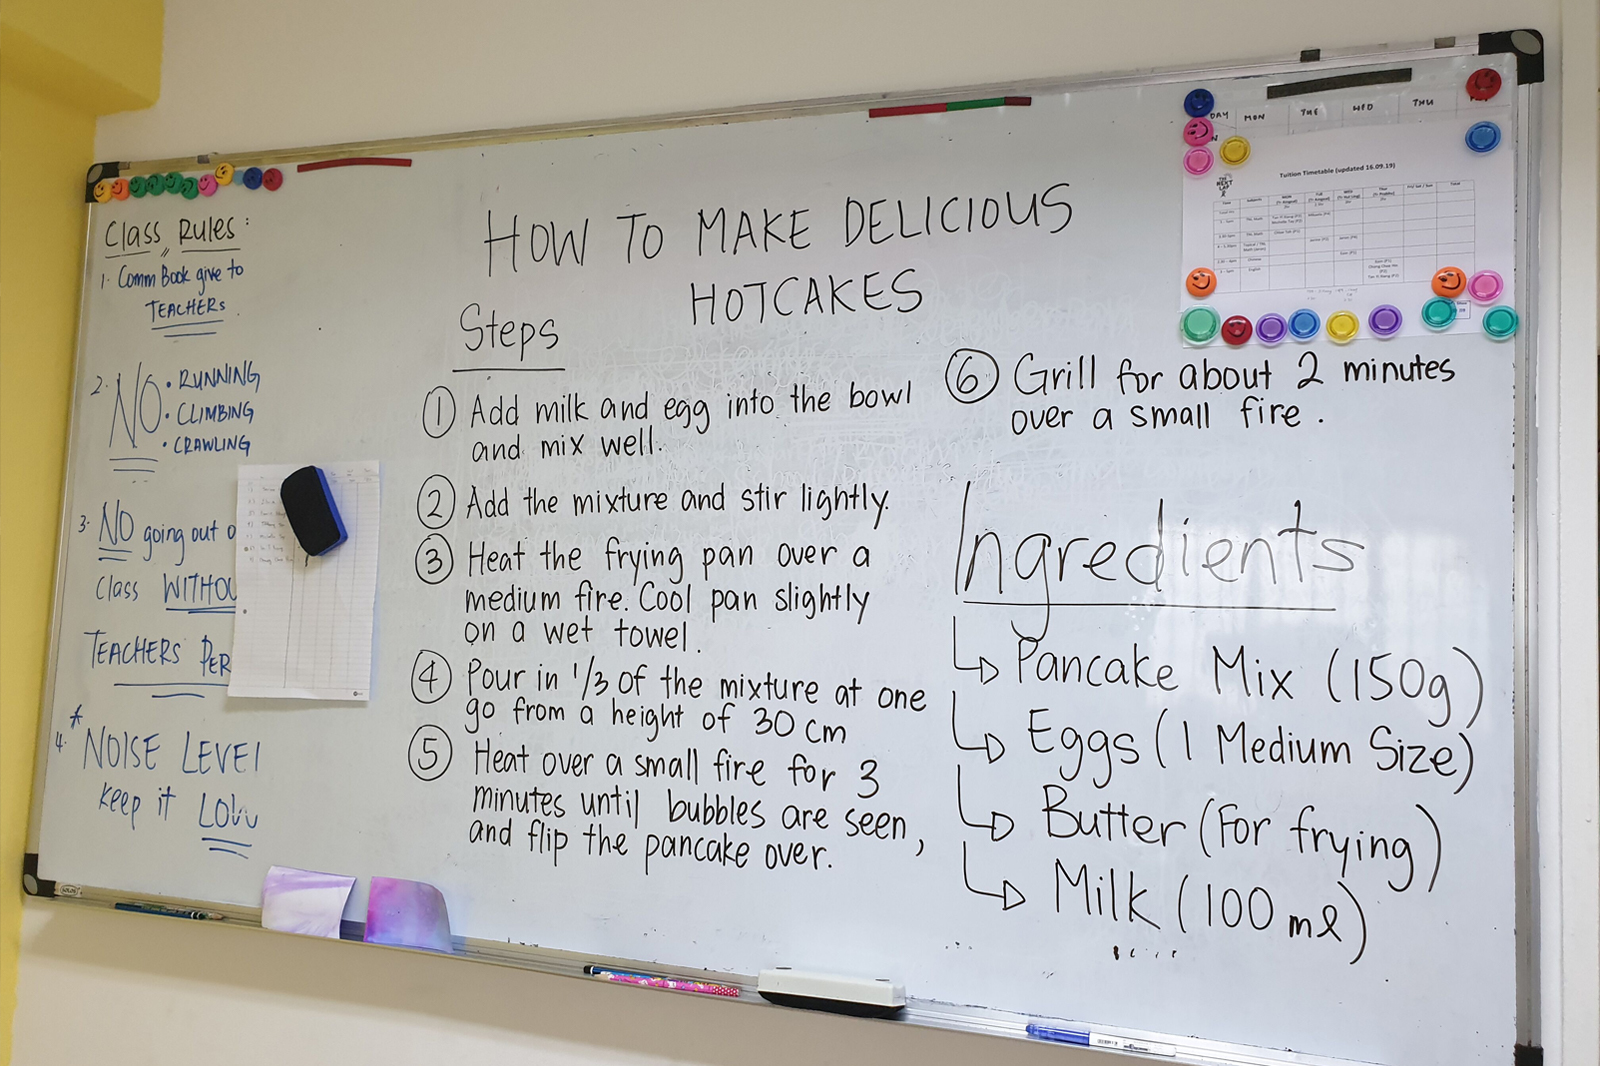 Class Rules:
1. Comm Book give to
TEACHERS
2. NO • RUNNING
• CLIMBING
• CRAWLING
3. NO going out
class
TEACHERS
4. NOISE LEVEL
keep it LOW
HOW TO MAKE DELICIOUS
HOTCAKES
Steps
① Add milk and egg into the bowl
and mix well.
② Add the mixture and stir lightly.
③ Heat the frying pan over a
medium fire. Cool pan slightly
on a wet towel.
④ Pour in 1/3 of the mixture at one
go from a height of 30 cm
⑤ Heat over a small fire for 3
minutes until bubbles are seen,
and flip the pancake over.
⑥ Grill for about 2 minutes
over a small fire.
Ingredients
Pancake Mix (150g)
Eggs (1 Medium Size)
Butter (For frying)
Milk (100 ml)
DAY MON TUE WED THU
Tuition Timetable (updated 16.09.19)